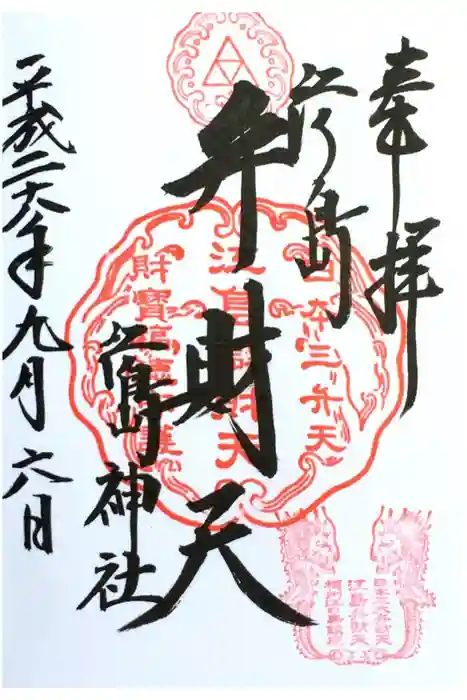 奉拝
江の島
弁財天
江島神社
平成二十八年九月六日
日本三弁天
江島辨財天
財寶福徳守護